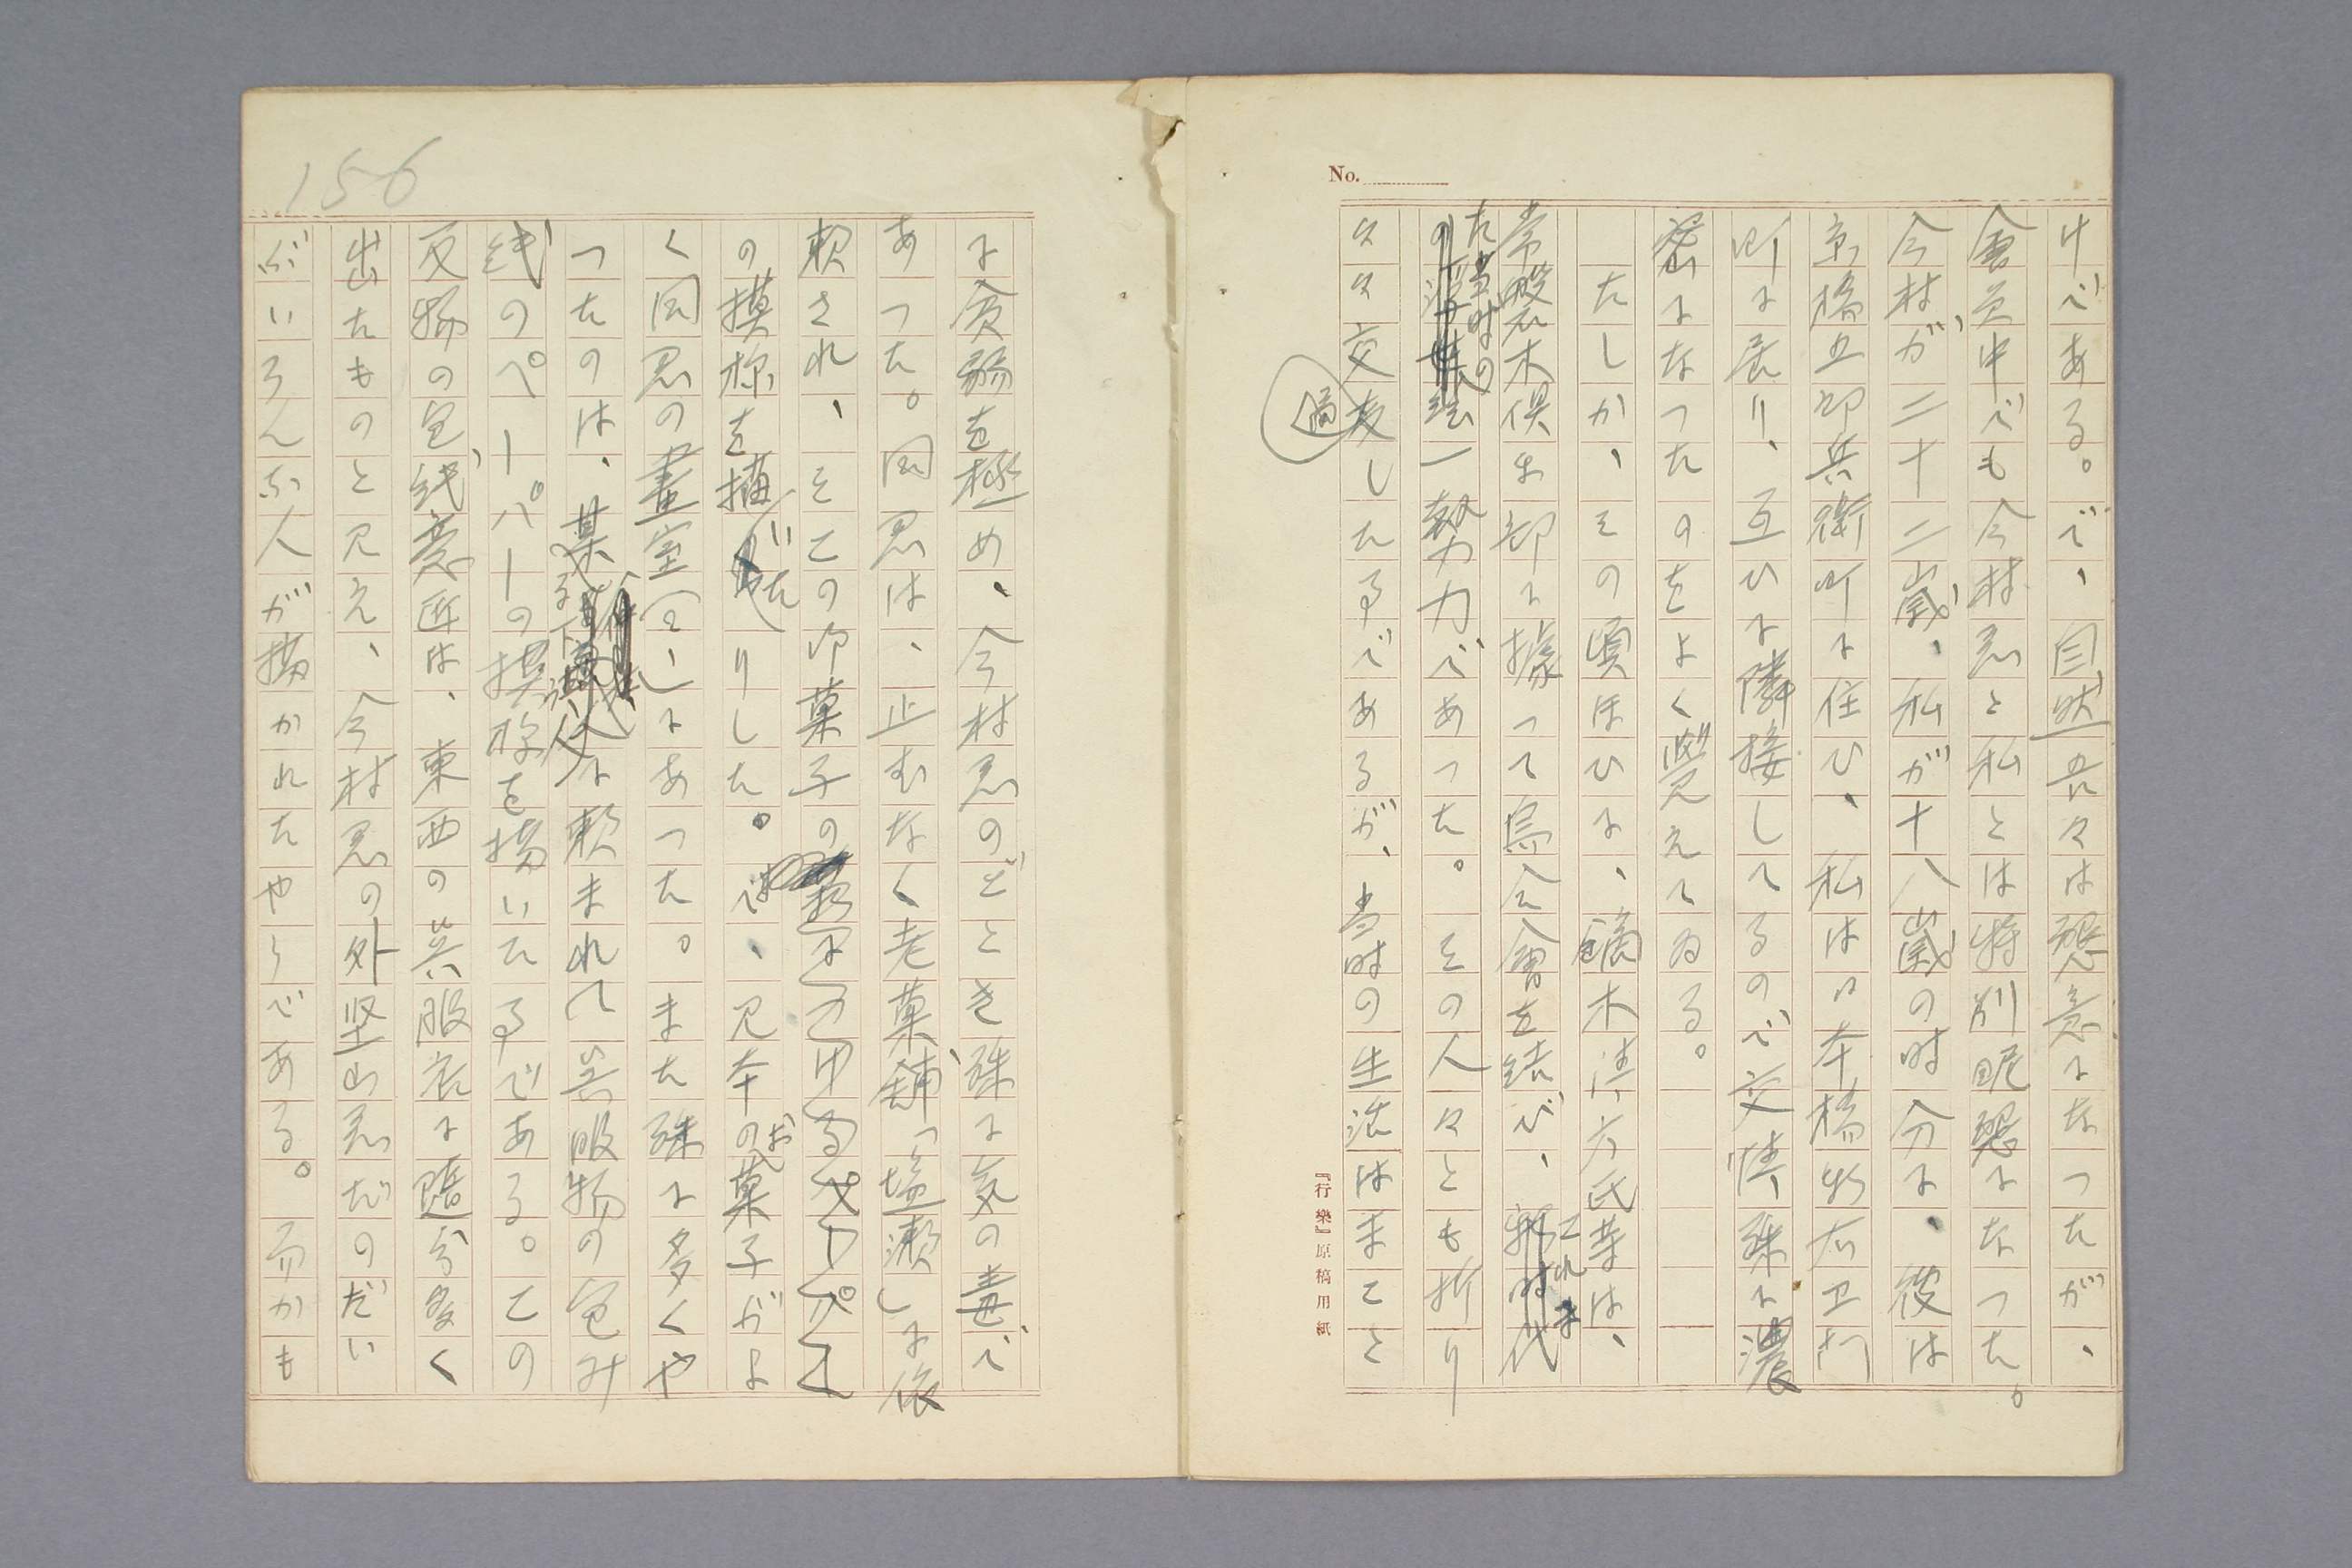 No.
けである。で、自然吾々は懇意になつたが、
會員中でも今村君と私とは特別昵懇になつた。
今村が二十二歳、私が十八歳の時分に、彼は
京橋五郎兵衛町に住ひ、私は日本橋檜物右ヱ門
町に居り、互ひに隣接してるので交情殊に濃
密になつたのをよく覺えてゐる。
たしか、その頃ほひに、鏑木清方氏等は、
常磐木倶楽部に據つて烏合會を結び、これま
た当時の
一勢力であつた。その人々とも折り
々々交友した事であるが、当時の生活はまこと
『行樂』原稿用紙
156
に貧弱を極め、今村君のごとき殊に気の毒で
あつた。同君は、止むなく老菓舗「塩瀬」に依
頼され、そこの御菓子の
の模様を描いたりした。で、見本のお菓子がよ
く同君の畫室にあつた。また殊に多くや
つたのは、某に頼まれて呉服物の包み
紙のペーパーの模様を描いた事である。この
反物の包紙意匠は、東西の呉服店に随分多く
出たものと見え、今村君の外堅山君だのだい
ぶいろんな人が描かれたやうである。而かも